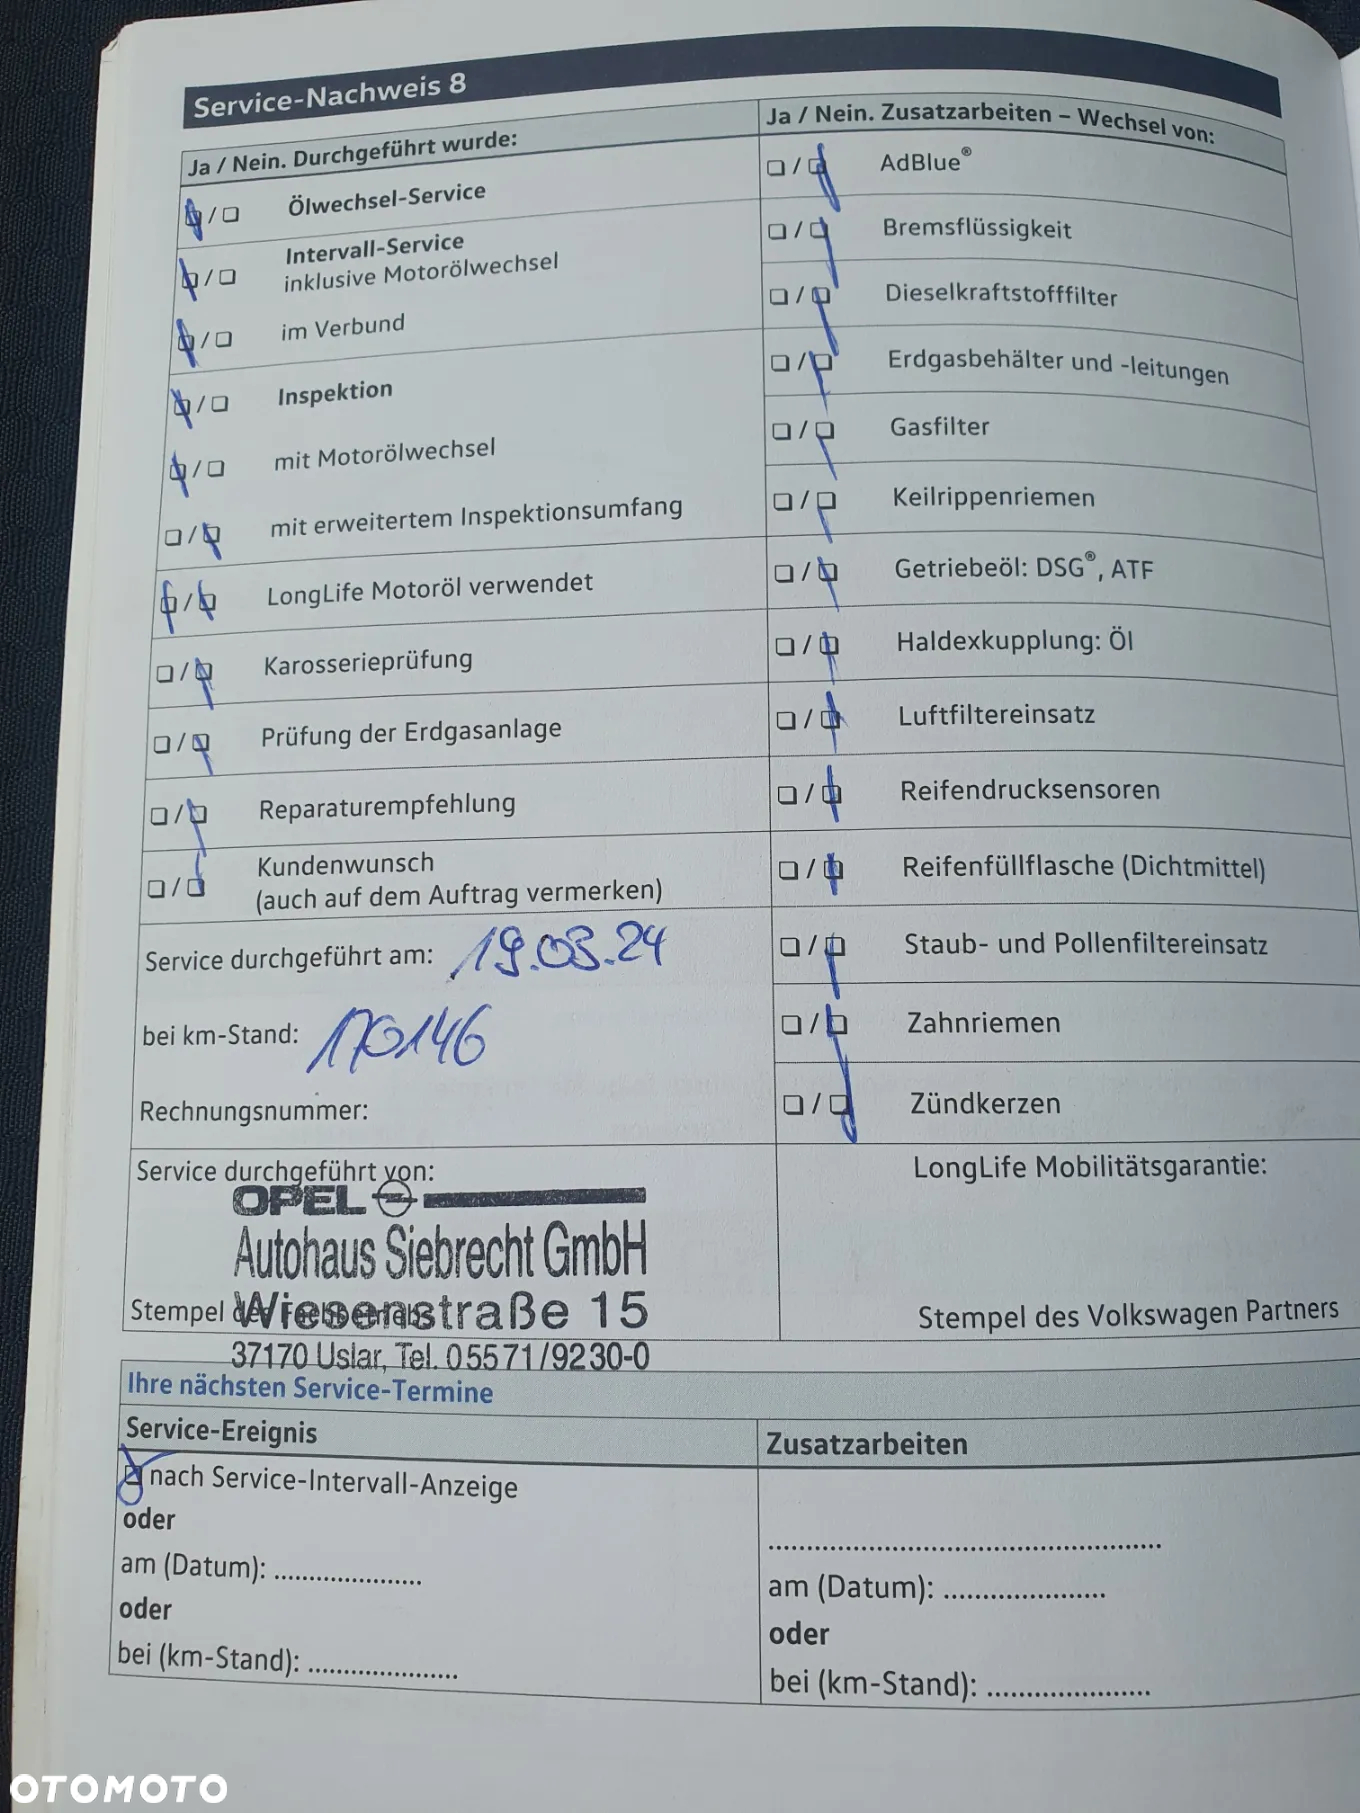 Service-Nachweis 8
Ja / Nein. Durchgeführt wurde:
Ölwechsel-Service
Intervall-Service
inklusive Motorölwechsel
im Verbund
Inspektion
mit Motorölwechsel
mit erweitertem Inspektionsumfang
LongLife Motoröl verwendet
Karosserieprüfung
Prüfung der Erdgasanlage
Reparaturempfehlung
Kundenwunsch
(auch auf dem Auftrag vermerken)
Service durchgeführt am: 19.03.24
bei km-Stand: 170146
Rechnungsnummer:
Service durchgeführt von:
OPEL
Autohaus Siebrecht GmbH
Wiesenstraße 15
Stempel des
37170 Uslar, Tel. 05571/9230-0
Ja / Nein. Zusatzarbeiten – Wechsel von:
AdBlue®
Bremsflüssigkeit
Dieselkraftstofffilter
Erdgasbehälter und -leitungen
Gasfilter
Keilrippenriemen
Getriebeöl: DSG®, ATF
Haldexkupplung: Öl
Luftfiltereinsatz
Reifendrucksensoren
Reifenfüllflasche (Dichtmittel)
Staub- und Pollenfiltereinsatz
Zahnriemen
Zündkerzen
LongLife Mobilitätsgarantie:
Stempel des Volkswagen Partners
Ihre nächsten Service-Termine
Service-Ereignis
nach Service-Intervall-Anzeige
oder
am (Datum): .....................
oder
bei (km-Stand): .....................
Zusatzarbeiten
........................................................
am (Datum): .......................
oder
bei (km-Stand): .......................
OTOMOTO